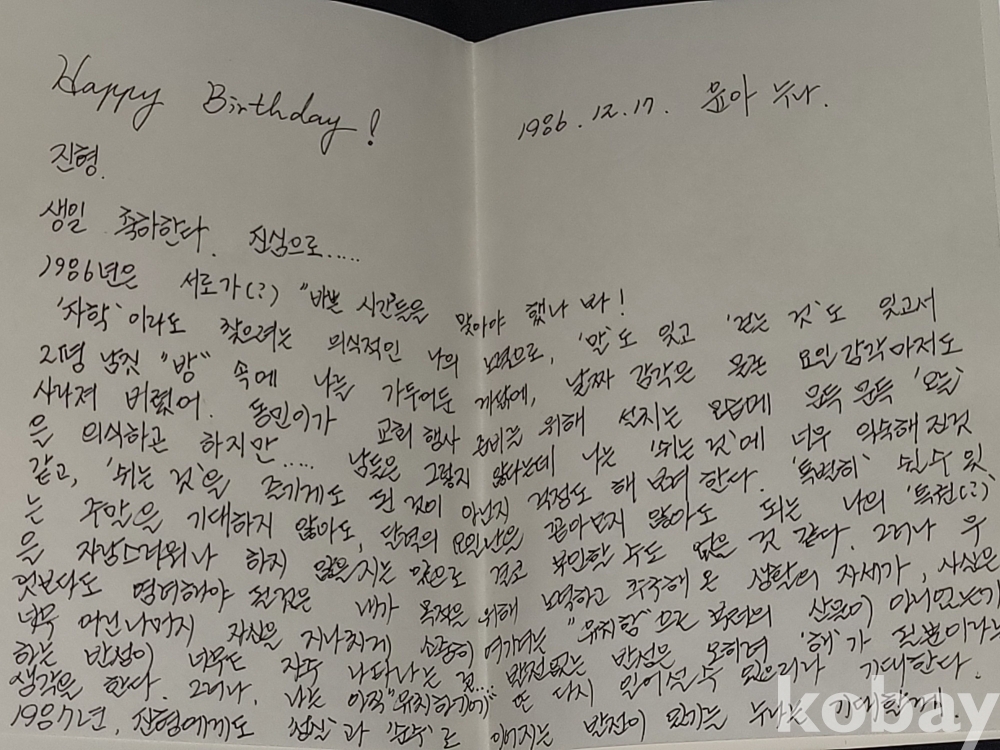 Happy Birthday!
1986. 12. 17. 윤아 누나.
진형.
생일 축하한다. 진심으로.....
1986년은 서로가(?) "바쁜 시간들을 맞아야 했나 봐!
'자학'이라도 찾으려는 의식적인 나의 노력으로, '말'도 잊고 '걷는 것'도 잊고서
2평 남짓 "방" 속에 나를 가두어둔 게 날짜 감각은 물론 요일감각마저도
사라져 버렸어. 동민이가 교회 행사 준비를 위해 설치는 모습에 문득 문득 '오늘'
을 의식하곤 하지만..... 남들은 그렇지 않다는데 나는 '쉬는 것'에 너무 익숙해 진것
같고, '쉬는 것'을 즐기게도 된 것이 아닌지 걱정도 해 보려 한다. '특별히' 쉴 수 있
는 주말을 기대하지 않아도, 달력의 요일난을 꼽아보지 않아도 되는 나의 '특권(?)'
을 자랑스러워나 하지 않을지는 앞으로 결코 부인할 수도 없을 것 같다. 그러나 우
엇보다도 염려해야 될것은 내가 목적을 위해 노력하고 추구해 온 생활의 자세가, 사실은
너무 어린나머지 자신을 지나치게 소중히 여기려는 "유치함"으로 부터의 산물이 아니었는가
하는 반성이 너무도 자주 나타나는 걸... 발전없는 반성은 오히려 '해'가 될뿐이라는
생각을 한다. 그러나, 나는 아직 "유치하기에" 또 다시 일어설 수 있으리라 기대한다.
1987년, 진형에게도 과 '순수'로 이어지는 발전이 있기를 누나는 기대할께.
kobay